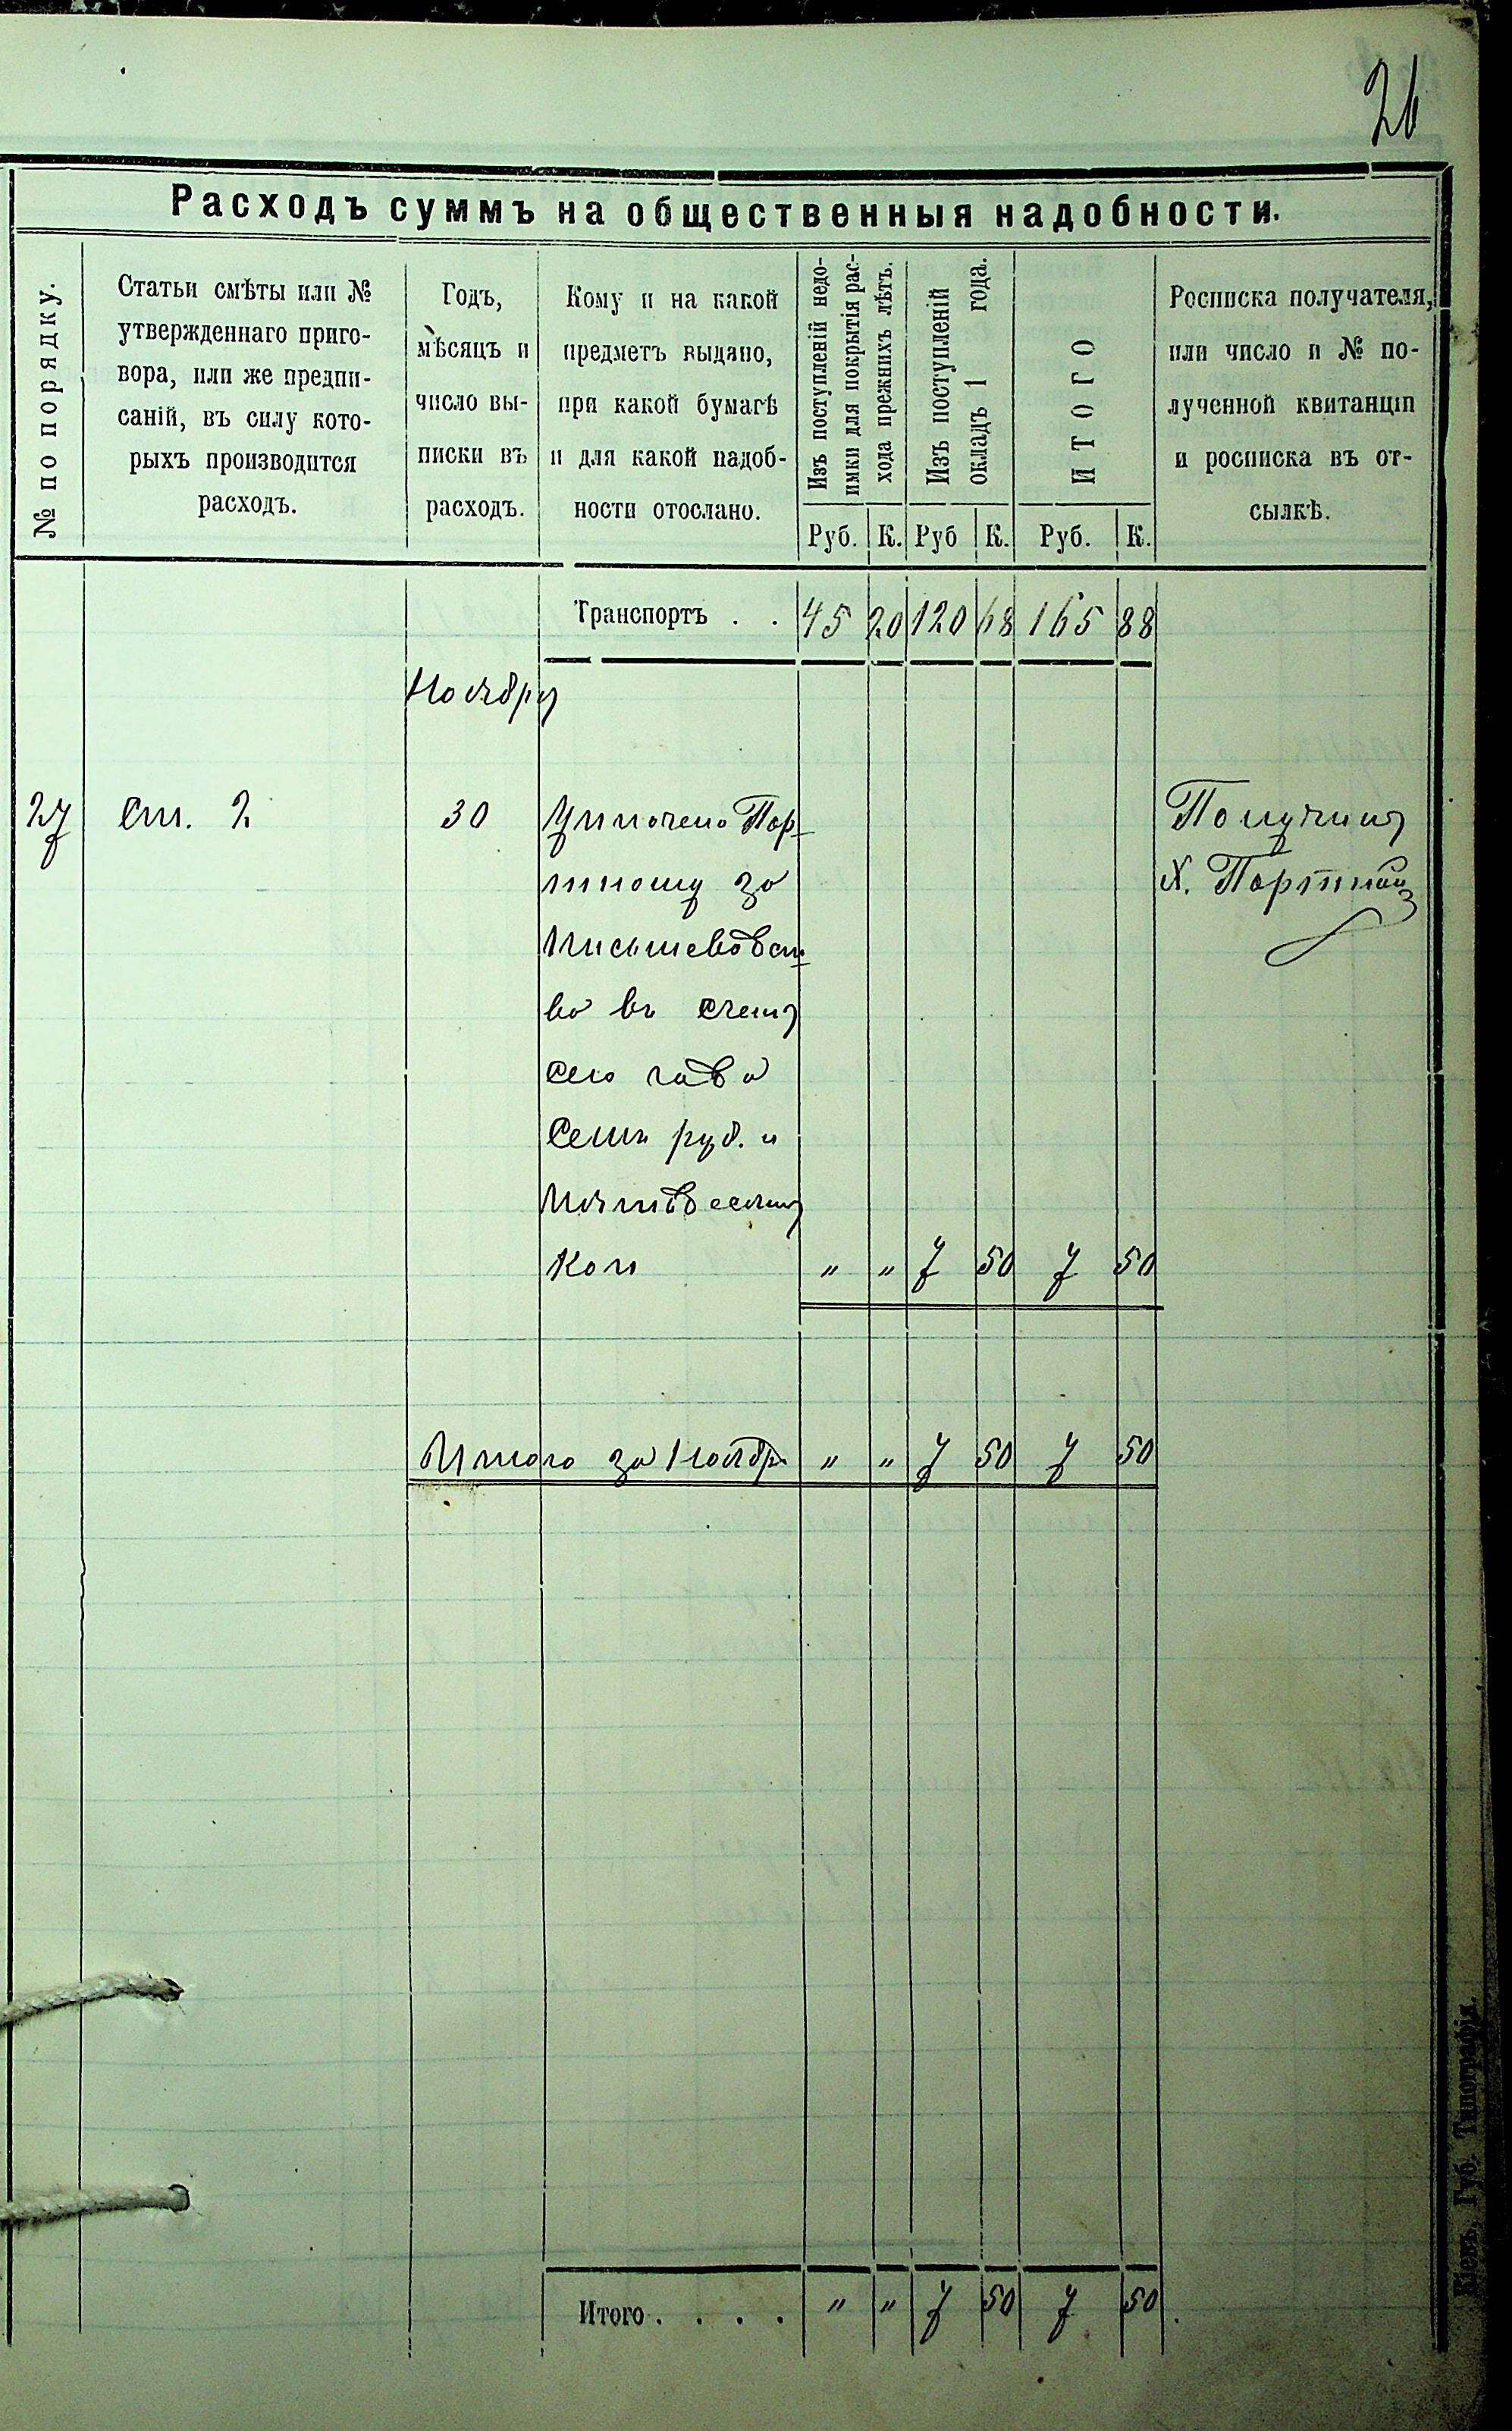 26
Расходъ суммъ на общественныя надобности.
№ по порядку.
Статьи смѣты или №
утвержденнаго приго-
вора, или же предпи-
саній, въ силу кото-
рыхъ производится
расходъ.
Годъ,
мѣсяцъ и
число вы-
писки въ
расходъ.
Кому и на какой
предметъ выдано,
при какой бумагѣ
и для какой надоб-
ности отослано.
Изъ поступленій недо-
имки для покрытія рас-
хода прежнихъ лѣтъ.
Изъ поступленій
окладъ 1 года.
ИТОГО
Росписка получателя,
или число и № по-
лученной квитанціи
и росписка въ от-
сылкѣ.
Руб. К. Руб К. Руб. К.
Транспортъ . . 45 20 120 68 165 88
Ноября
27 ст. 2 30 Уплочено Пор- Получилъ
тному за Х. Портной
письмоводст-
во въ счетъ
сего года
Семь руб. и
пятьдесятъ
коп " " 7 50 7 50
Итого за Ноябр. " " 7 50 7 50
Итого . . . . " " 7 50 7 50
Кіевъ, Губ. Типографія.